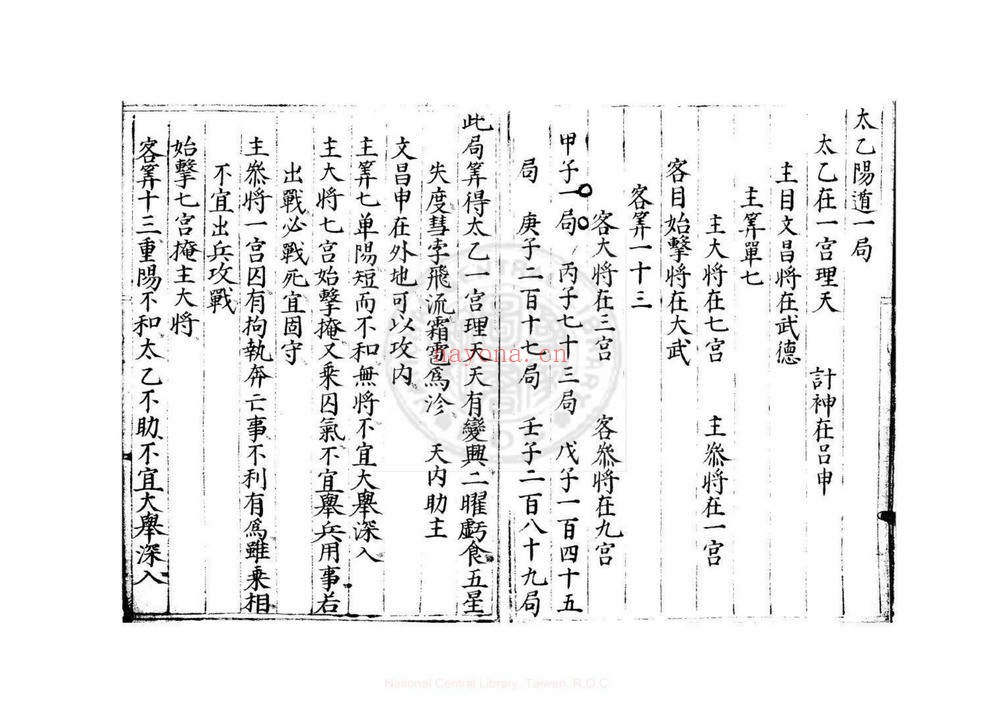 太乙陽道一局
太乙在一宮理天　計神在呂申
主目文昌將在武德
主筭單七
主大將在七宮　主叅將在一宮
客目始擊將在大武
客筭一十三
客大將在三宮　客叅將在九宮
甲子一局　丙子七十三局　戊子一百四十五
局　庚子二百十七局　壬子二百八十九局
此局筭得太乙一宮理天天有變異二曜虧食五星
失度彗孛飛流霜雹為沴　天內助主
文昌申在外地可以攻內
主筭七单陽短而不和無將不宜大舉深入
主大將七宮始擊掩又乘囚氣不宜舉兵用事若
出戰必戰死宜固守
主叅將一宮囚有拘執奔亡事不利有為雖乘相
不宜出兵攻戰
始擊七宮掩主大將
客筭十三重陽不和太乙不助不宜大舉深入
nayona.cn
National Central Library, Taiwan, R.O.C